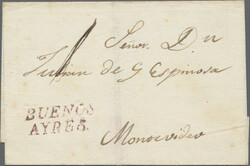 Señor. Dn
de G Espinosa
BUENOS
AYRES.
Montevideo